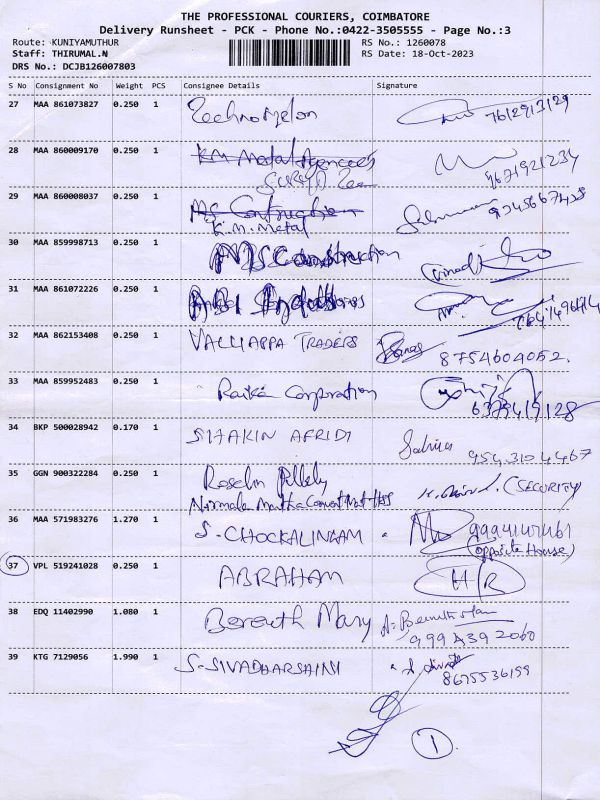 THE PROFESSIONAL COURIERS, COIMBATORE
Delivery Runsheet - PCK - Phone No.:0422-3505555 - Page No.:3
Route: KUNIYAMUTHUR RS No.: 1260078
Staff: THIRUMAL.N RS Date: 18-Oct-2023
DRS No.: DCJB126007803
S No Consignment No Weight PCS Consignee Details Signature
27 MAA 861073827 0.250 1 7612913129
28 MAA 860009170 0.250 1 KM Metal Agencees 9671921234
29 MAA 860008037 0.250 1 MS Contruction
K.M. Metal
30 MAA 859998713 0.250 1 MS Construction
31 MAA 861072226 0.250 1
32 MAA 862153408 0.250 1 VALLIAPPA TRADERS
8754604052.
33 MAA 859952483 0.250 1 Raika Corporation
6379419128
34 BKP 500028942 0.170 1 SHAKIN AFRIDI
9543104467
35 GGN 900322284 0.250 1 Roselin
Nirmala Matha Convent Mat Hss (SECURITY)
36 MAA 571983276 1.270 1 S. CHOCKALINGAM
(opposite House)
37 VPL 519241028 0.250 1 ABRAHAM
38 EDQ 11402990 1.080 1 Mary
9994392060
39 KTG 7129056 1.990 1 S-SIVADHARSAINI
8675536199
1